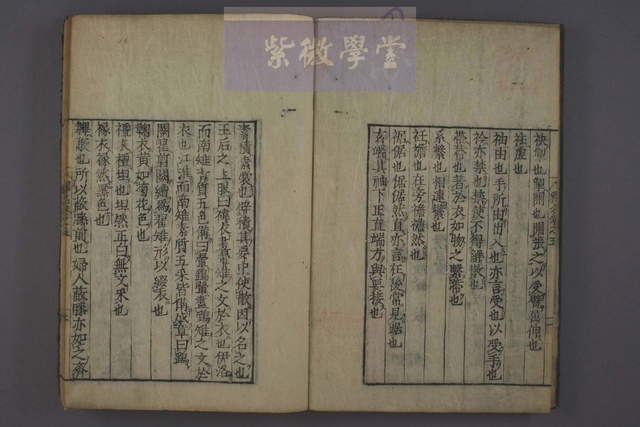 紫微學堂
袂掣也掣開也開張之以受臂屈伸也
袪虛也
袖由也手所由出入也亦言受也以受手也
衿亦禁也禁使不得解散也
帶蒂也著於衣如物之繫蒂也
系繫也相連繫也
衽襜也在旁襜襜然也
裾倨也倨倨然直亦言在後常見踞也
玄端其袖下正直端方與要接也
素積素裳也辟積其要中使踧因以名之也
王后之上服曰褘衣畫翬雉之文於衣也伊洛
而南雉青質五色備曰翬鷂翟畫鷂雉之文於
衣也江淮而南雉素質五采皆備成章曰鷂
闕翟翦闕繒爲翟雉形以綴衣也
鞠衣黃如菊花色也
襢衣襢坦也坦然正白無文采也
褖衣褖然黑色也
韠蔽也所以蔽膝前也婦人蔽膝亦如之齊